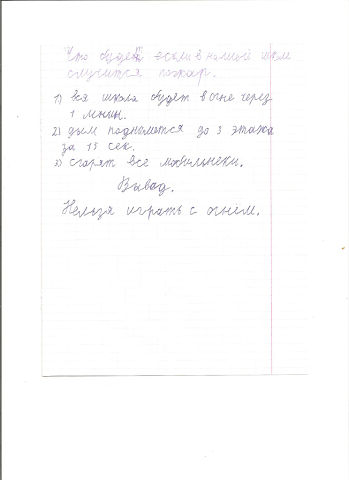 Что будет если в нашей шкле
случится пожар.
1) вся школа будет в огне через
1 минин.
2) дым поднемется до 3 этажа
за 15 сек.
3) сгорят все мобильнеки.
Вывад.
Нельзя играть с огнём.